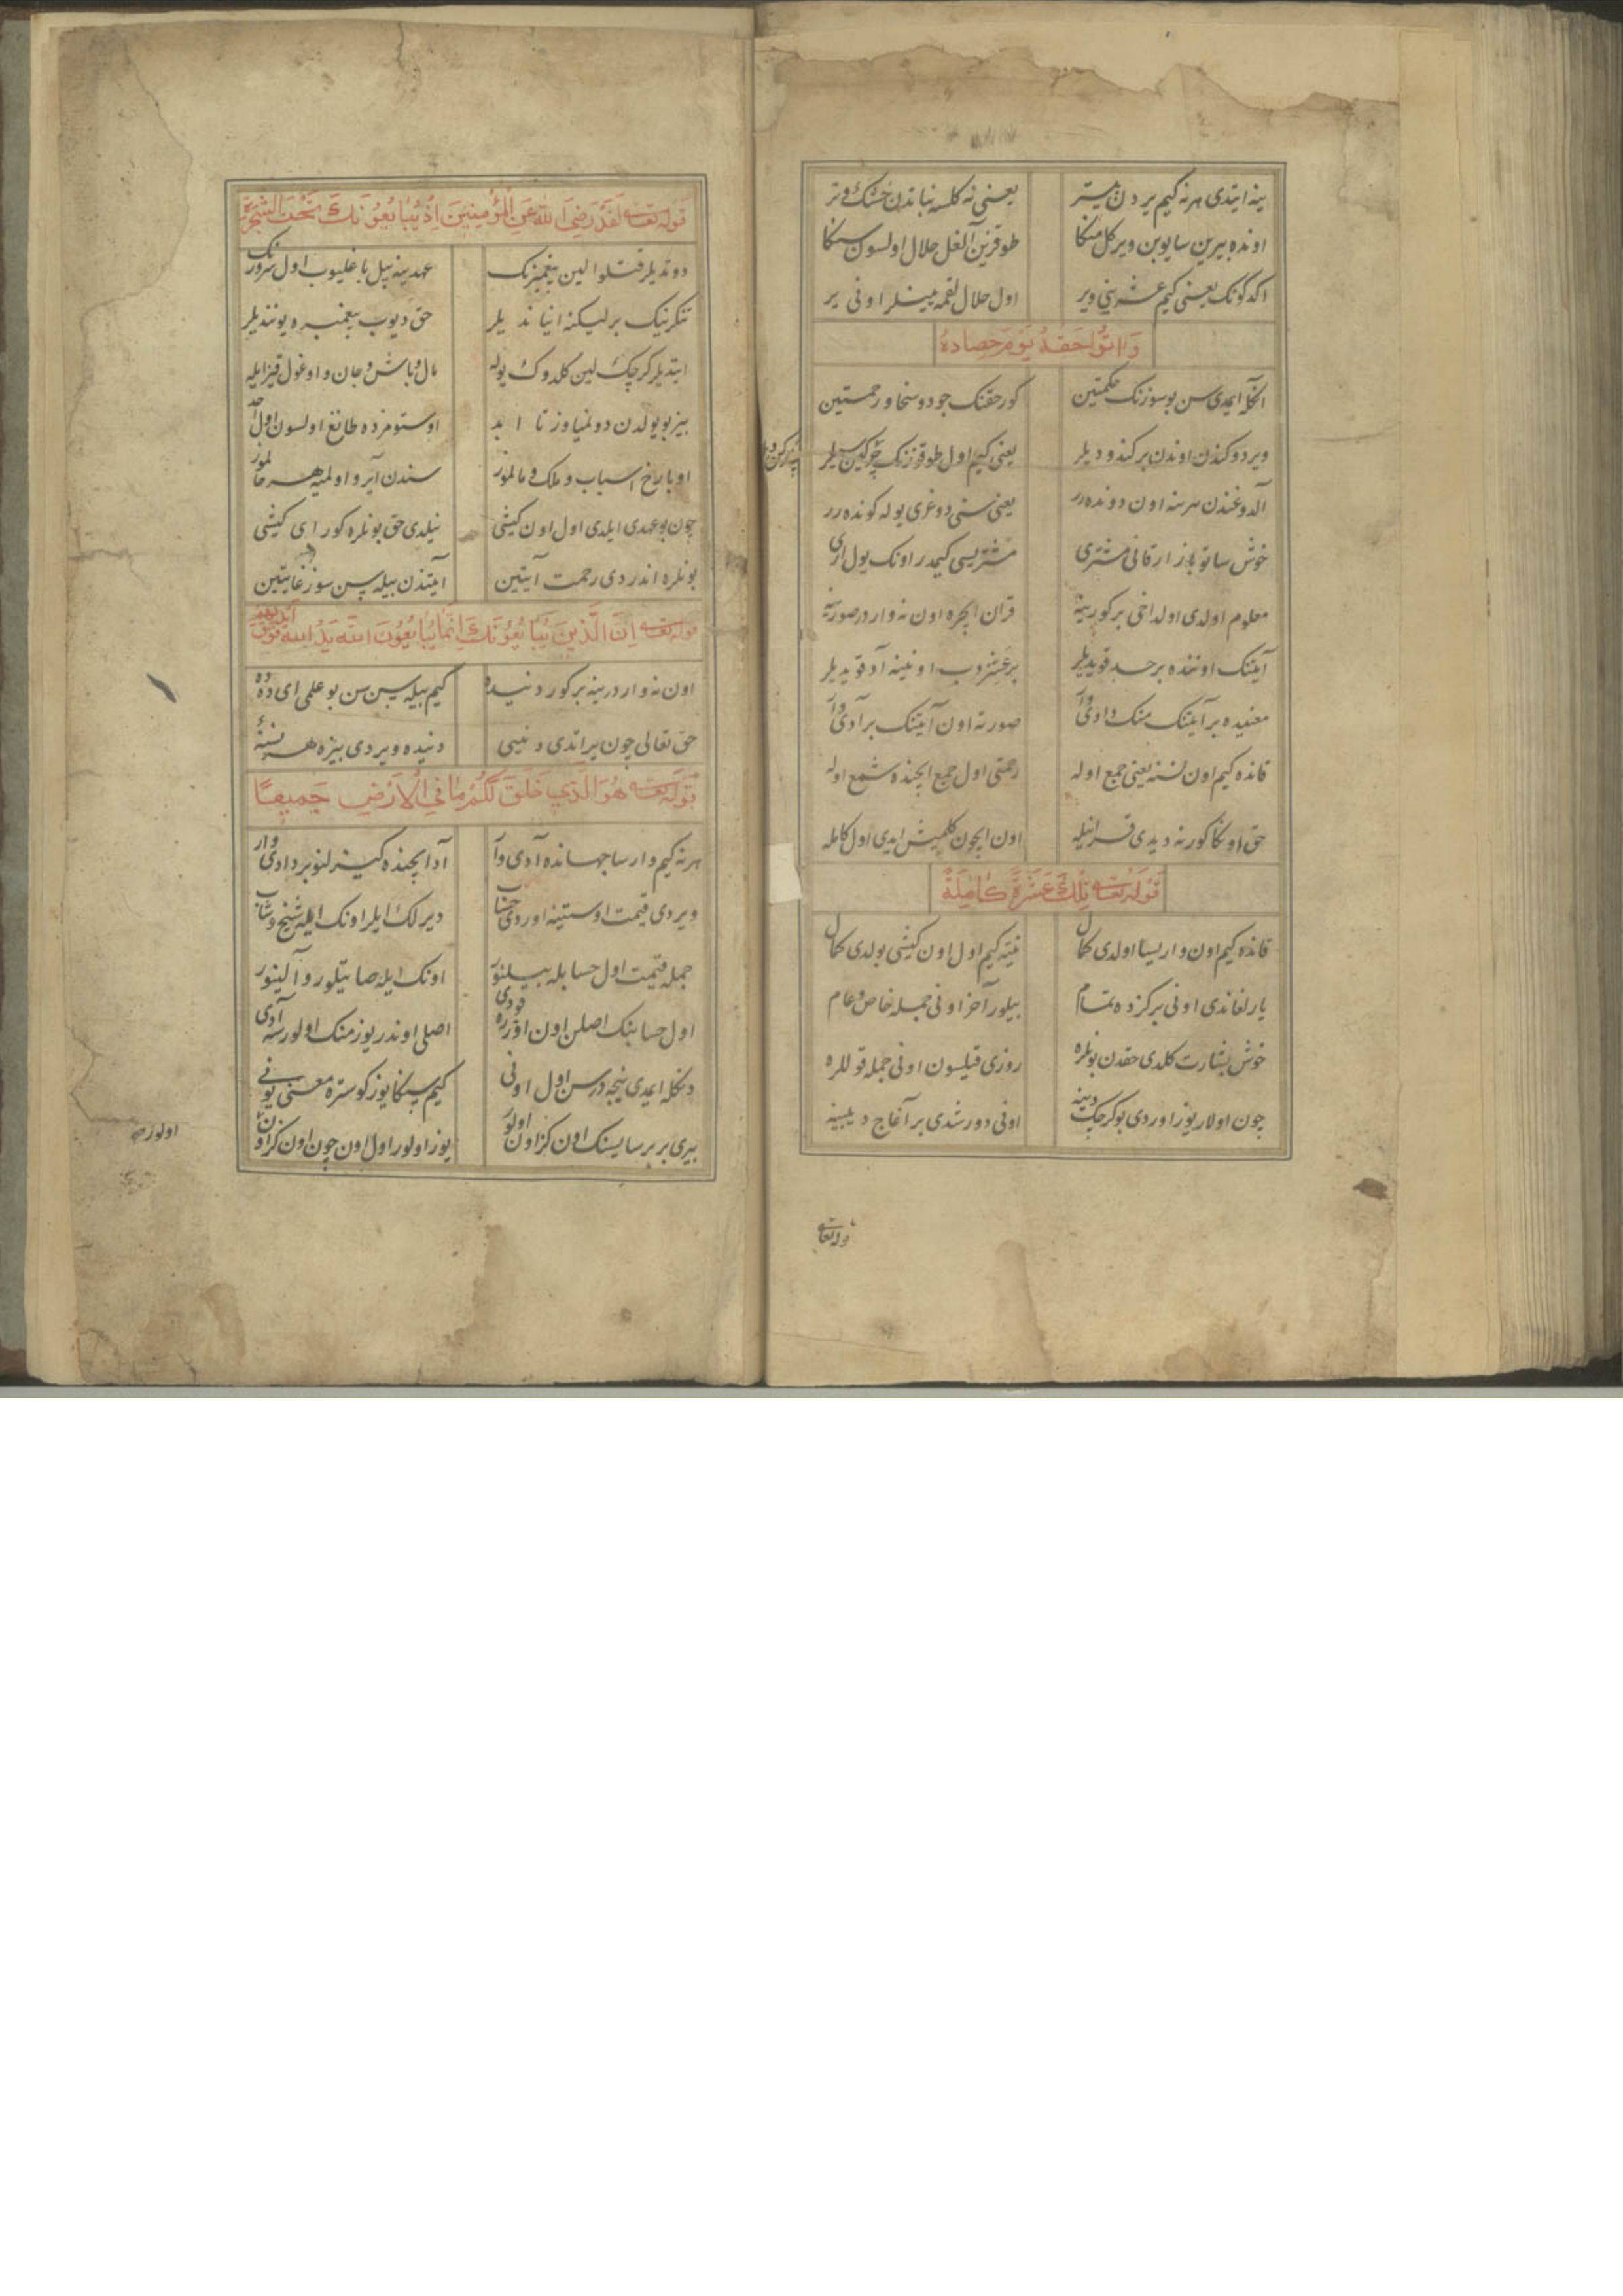 ینه ایتدی هرنه کیم یردن بیتر یعنی نه کلسه نباتدن خشک و تر
اونده بیرین سایوبن ویرکل منکا طوقزین آلغل حلال اولسون سنکا
اکدکونک یعنی کیم عشرینی ویر اول حلال لقمه اونی یر
وَاٰتُوا حَقَّهُ يَوْمَ حَصادِهِ
اکلا ایمدی سن بوسوزنک حکمتین کورحقنک جود و سخا و رحمتین
ویردوکندن اوندن بر کندو دیلر یعنی کیم اول طوقوزنک
آلدوغندن هرینه اون دونده‌رر یعنی سنی دوغری یوله کونده‌رر
خوش ساتو بازار قانی مشتری مشتریسی کیمدر اونک یول اری
معلوم اولدی اولداخی برکورینه قران ایچره اون نه وار درصورینه
آیتنک اوننده بر حد قویدیلر برعشردیوب اونینه آد قویدیلر
معنیده بر آیتنک منک دادی وار صورته اون آیتنک برآدی وار
قانده کیم اون نسنه یعنی جمع اوله رحمتی اول جمع ایچنده شمع اوله
حق اونکا کورنه دیدی قرانیله اون ایچون کلمیش ایدی اول کامله
قوله تعالی تِلْكَ عَشَرَةٌ كَامِلَةٌ
قانده کیم اون واریسا اولدی کمال نیته کیم اول اون کیشی بولدی کمال
یارلغاندی اونی برکزده تمام بیلور آخر اونی جمله خاص و عام
خوش بشارت کلدی حقدن بونلره روزی قیلسون اونی جمله قوللره
چون اولار یوز اوردی بو کرچک دینه اونی دورشدی بر آغاج دیبینه
قوله تعالی
قوله تعالی لَقَدْ رَضِيَ اللهُ عَنِ الْمُؤْمِنِينَ اِذْ يُبَايِعُونَكَ تَحْتَ الشَّجَرَةِ
دوتدیلر قتلو الین پیغمبرنک عهدینه بیل باغلیوب اول سرورنک
تنکرینک برلیکنه اینان دیلر حق دیوب پیغمبره یوندیلر
ایتدیلر کرچک لین کلدوک یوله مال و باش و جان و اوغول قیزایله
بیز بو یولدن دونمیاوز تا ابد اوستومزده طانغ اولسون اول احد
اوبارخ اسباب و ملک و مالمز سندن آیرو اولمیه هر حالمز
چون بوعهدی ایلدی اول اون کیشی نیلدی حق بونلره کور ای کیشی
بونلره اندردی رحمت آیتین آیتدن بیله‌سن سوز غایتین
قوله تعالی اِنَّ الَّذِينَ يُبَايِعُونَكَ اِنَّمَا يُبَايِعُونَ اللهَ يَدُ اللهِ فَوْقَ اَيْدِيهِمْ
اون نه واردر ینه برکور دنیده کیم بیله‌سن سن بو علمی ای دده
حق تعالی چون یراتدی دنیی دنیده ویردی بیزه هر نسنه‌ئ
قوله تعالی هُوَ الَّذِي خَلَقَ لَكُمْ مَا فِي الْاَرْضِ جَمِيعًا
هرنه کیم وارسا جهانده آدی وار آد ایچنده کیزلنو بر دادی وار
ویردی قیمت اوستینه اوردی حساب دیرلک ایلر اونک ایله شیخ و شاب
جمله قیمت اول حسابله بیلنور اونک ایله صاتیلور و آلینور
اول حسابنک اصلن اون اوزره قودی اصلی اوندر یوز منک اولورسه آدی
دنکله ایمدی نیجه درسن اول اونی کیم سنکا یوز کوستره معنی یونی
بیری بر بر سایسنک اون کز اون اولور یوز اولور اول اون چون اون کز اون
اولورسه